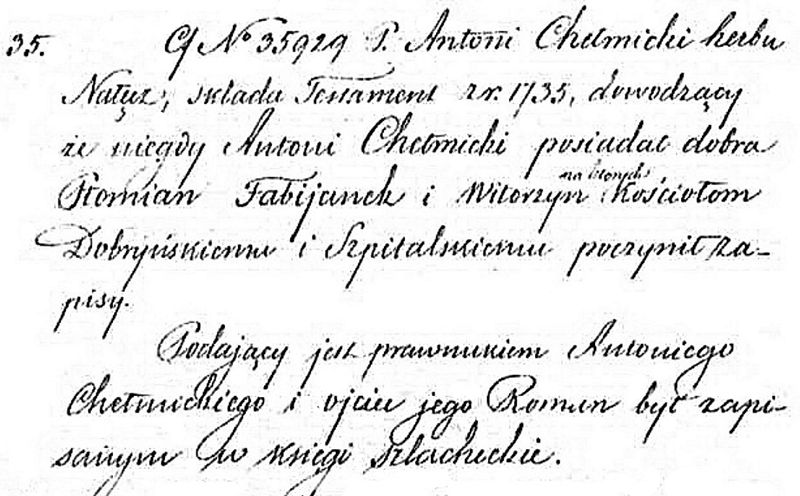 35. Cf No 35929 P. Antoni Chełmicki herbu
Nałęcz, składa Testament z r. 1735, dowodzący
że niegdy Antoni Chełmicki posiadał dobra
Płomian Fabijanek i Witorzyn na których Kościołom
Dobryńskiemu i Szpitalskiemu poczynił za-
pisy.
Podający jest prawnukiem Antoniego
Chełmickiego i ojciec jego Roman był zapi-
sanym w księgi szlacheckie.